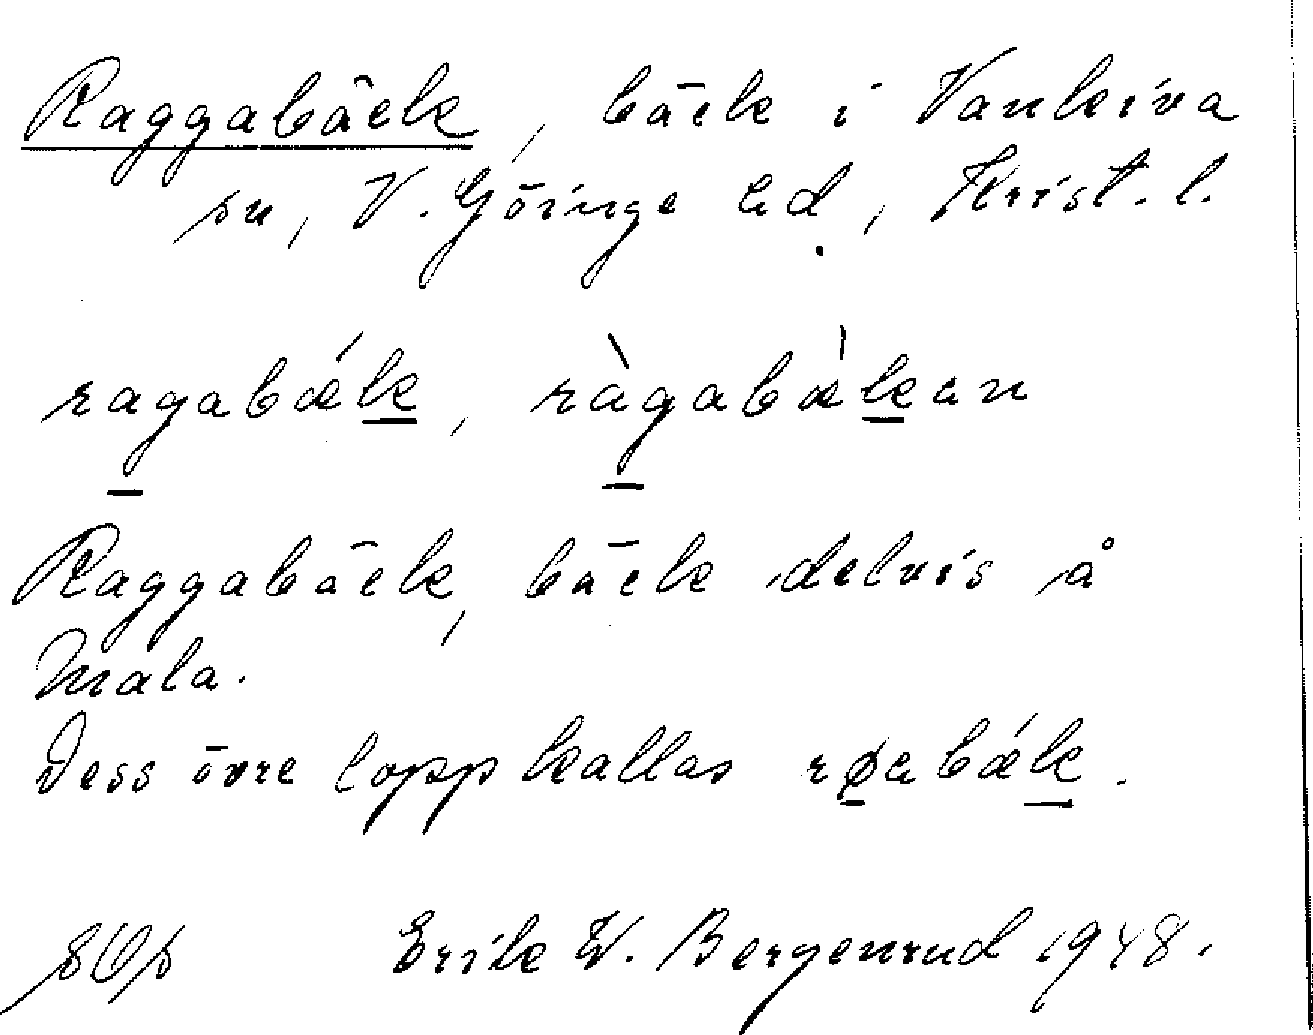 Raggabäck, bäck i Vankiva
sn, V. Göinge hd, Krist. l.
ragabǽk, ràgabæ̀kan
Raggabäck, bäck delvis å
Mala.
Dess övre lopp kallas røabǽk.
Erik W. Bergenrud 1948.